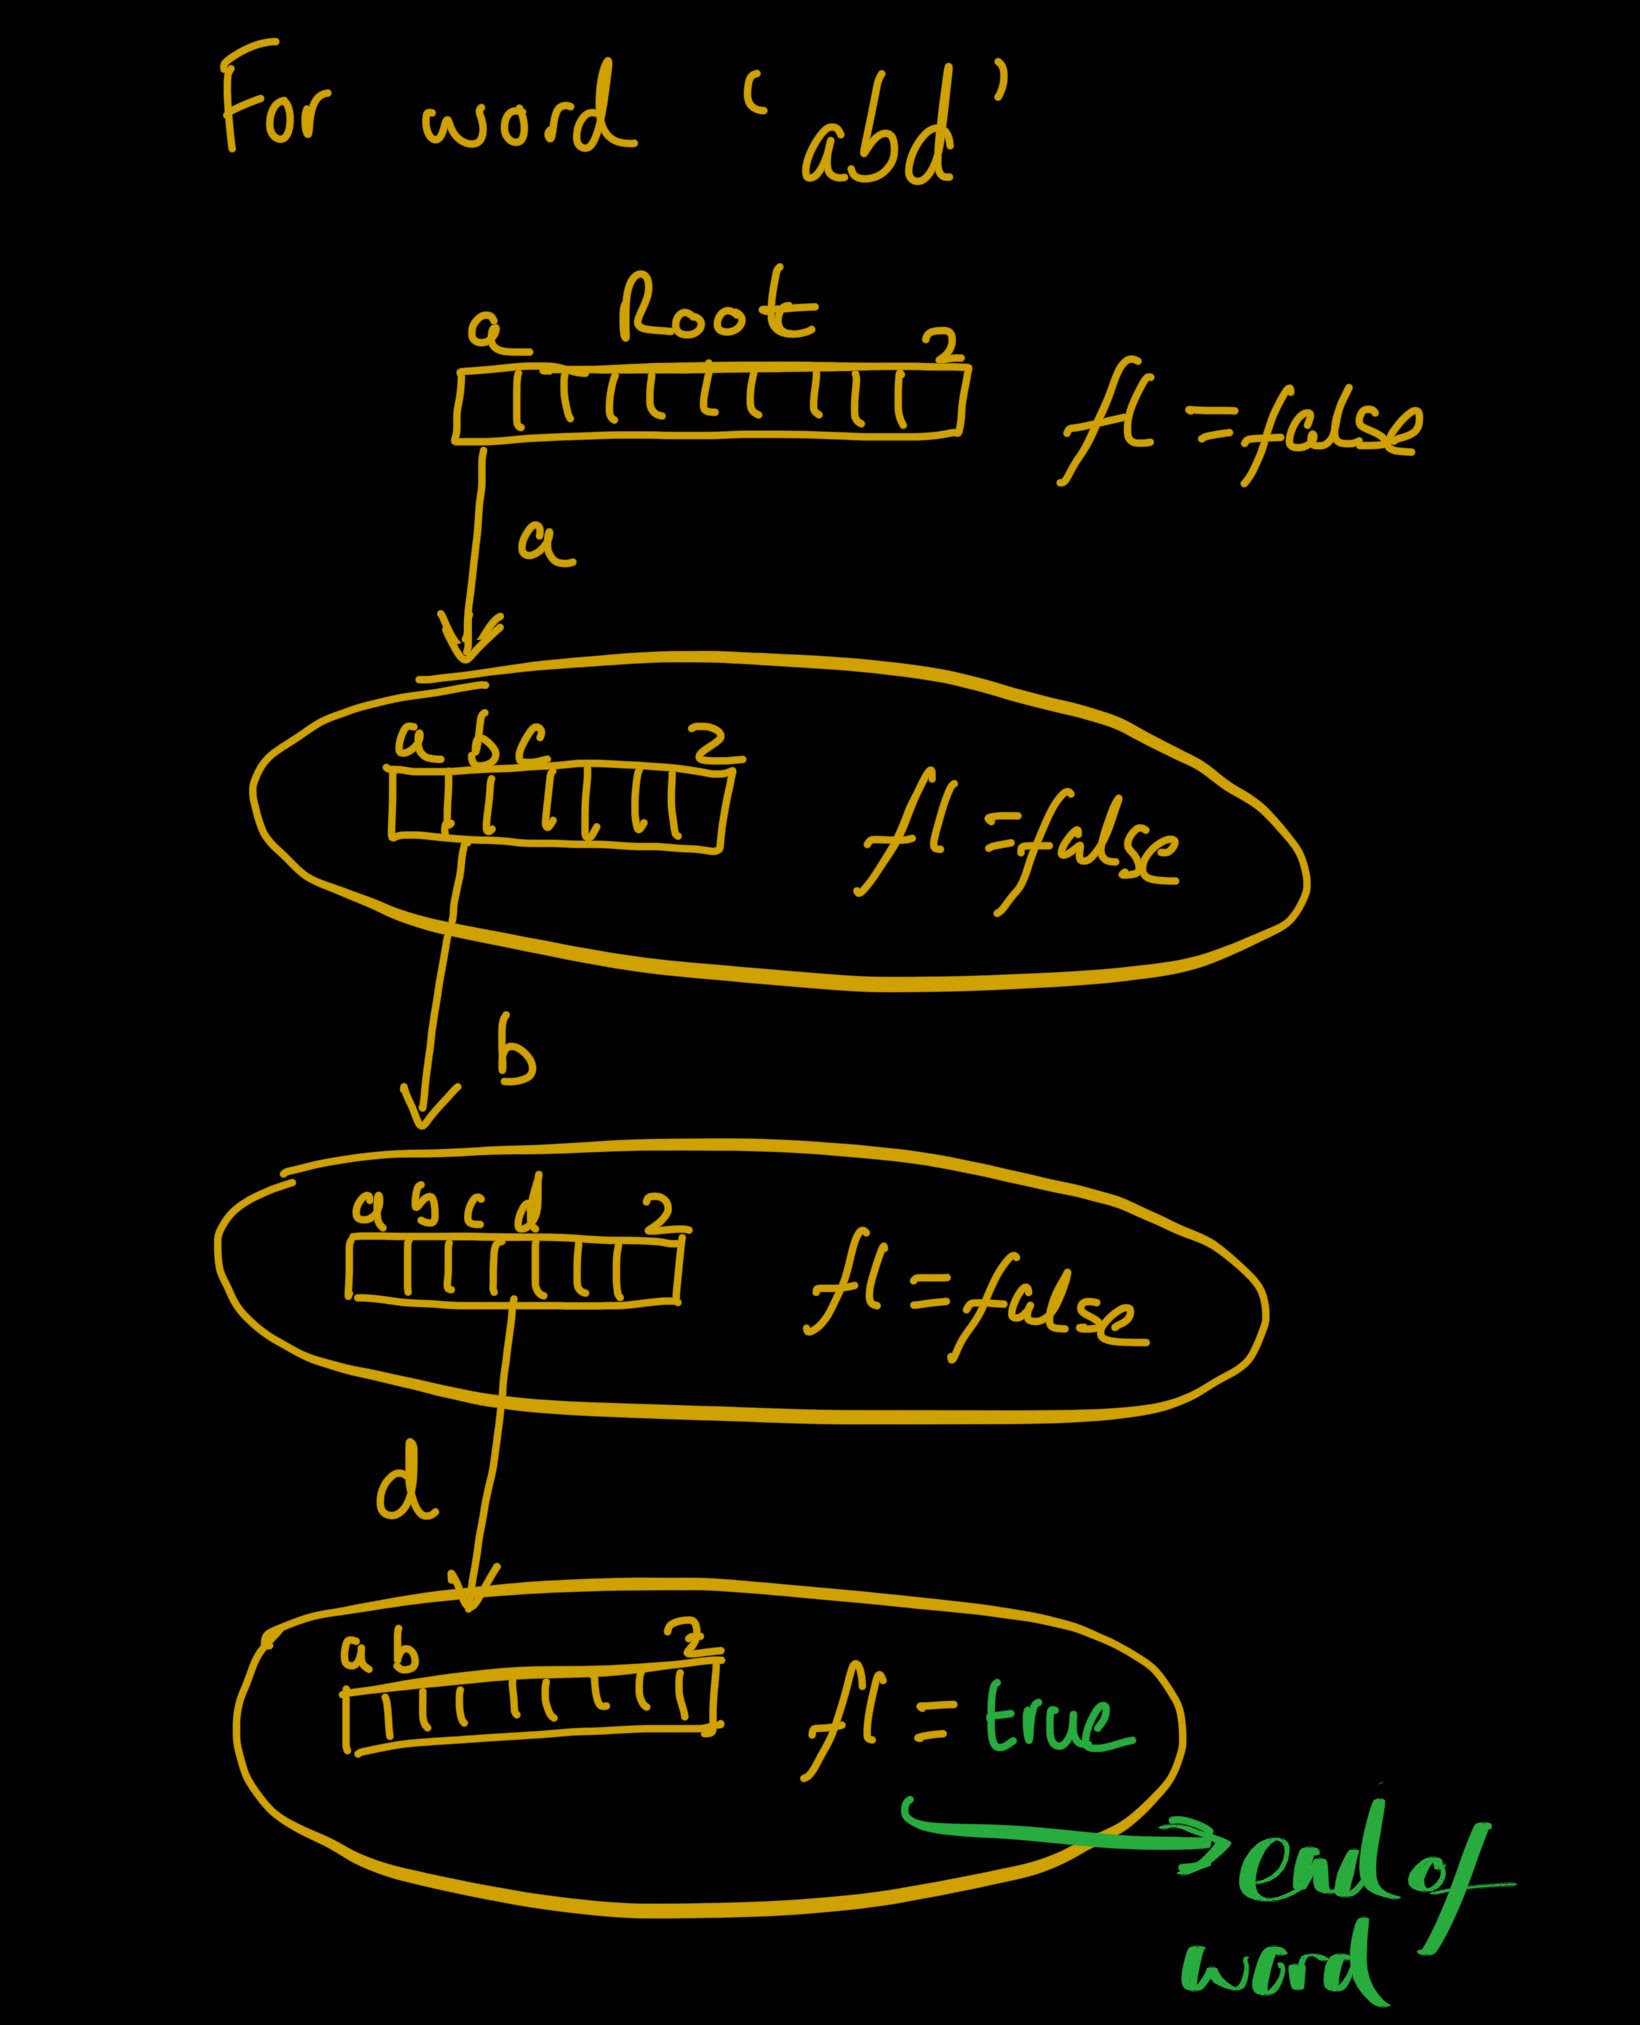 For word ‘abd’
Root
a z
fl = false
a
a b c z
fl = false
b
a b c d z
fl = false
d
a b z
fl = true
end of
word